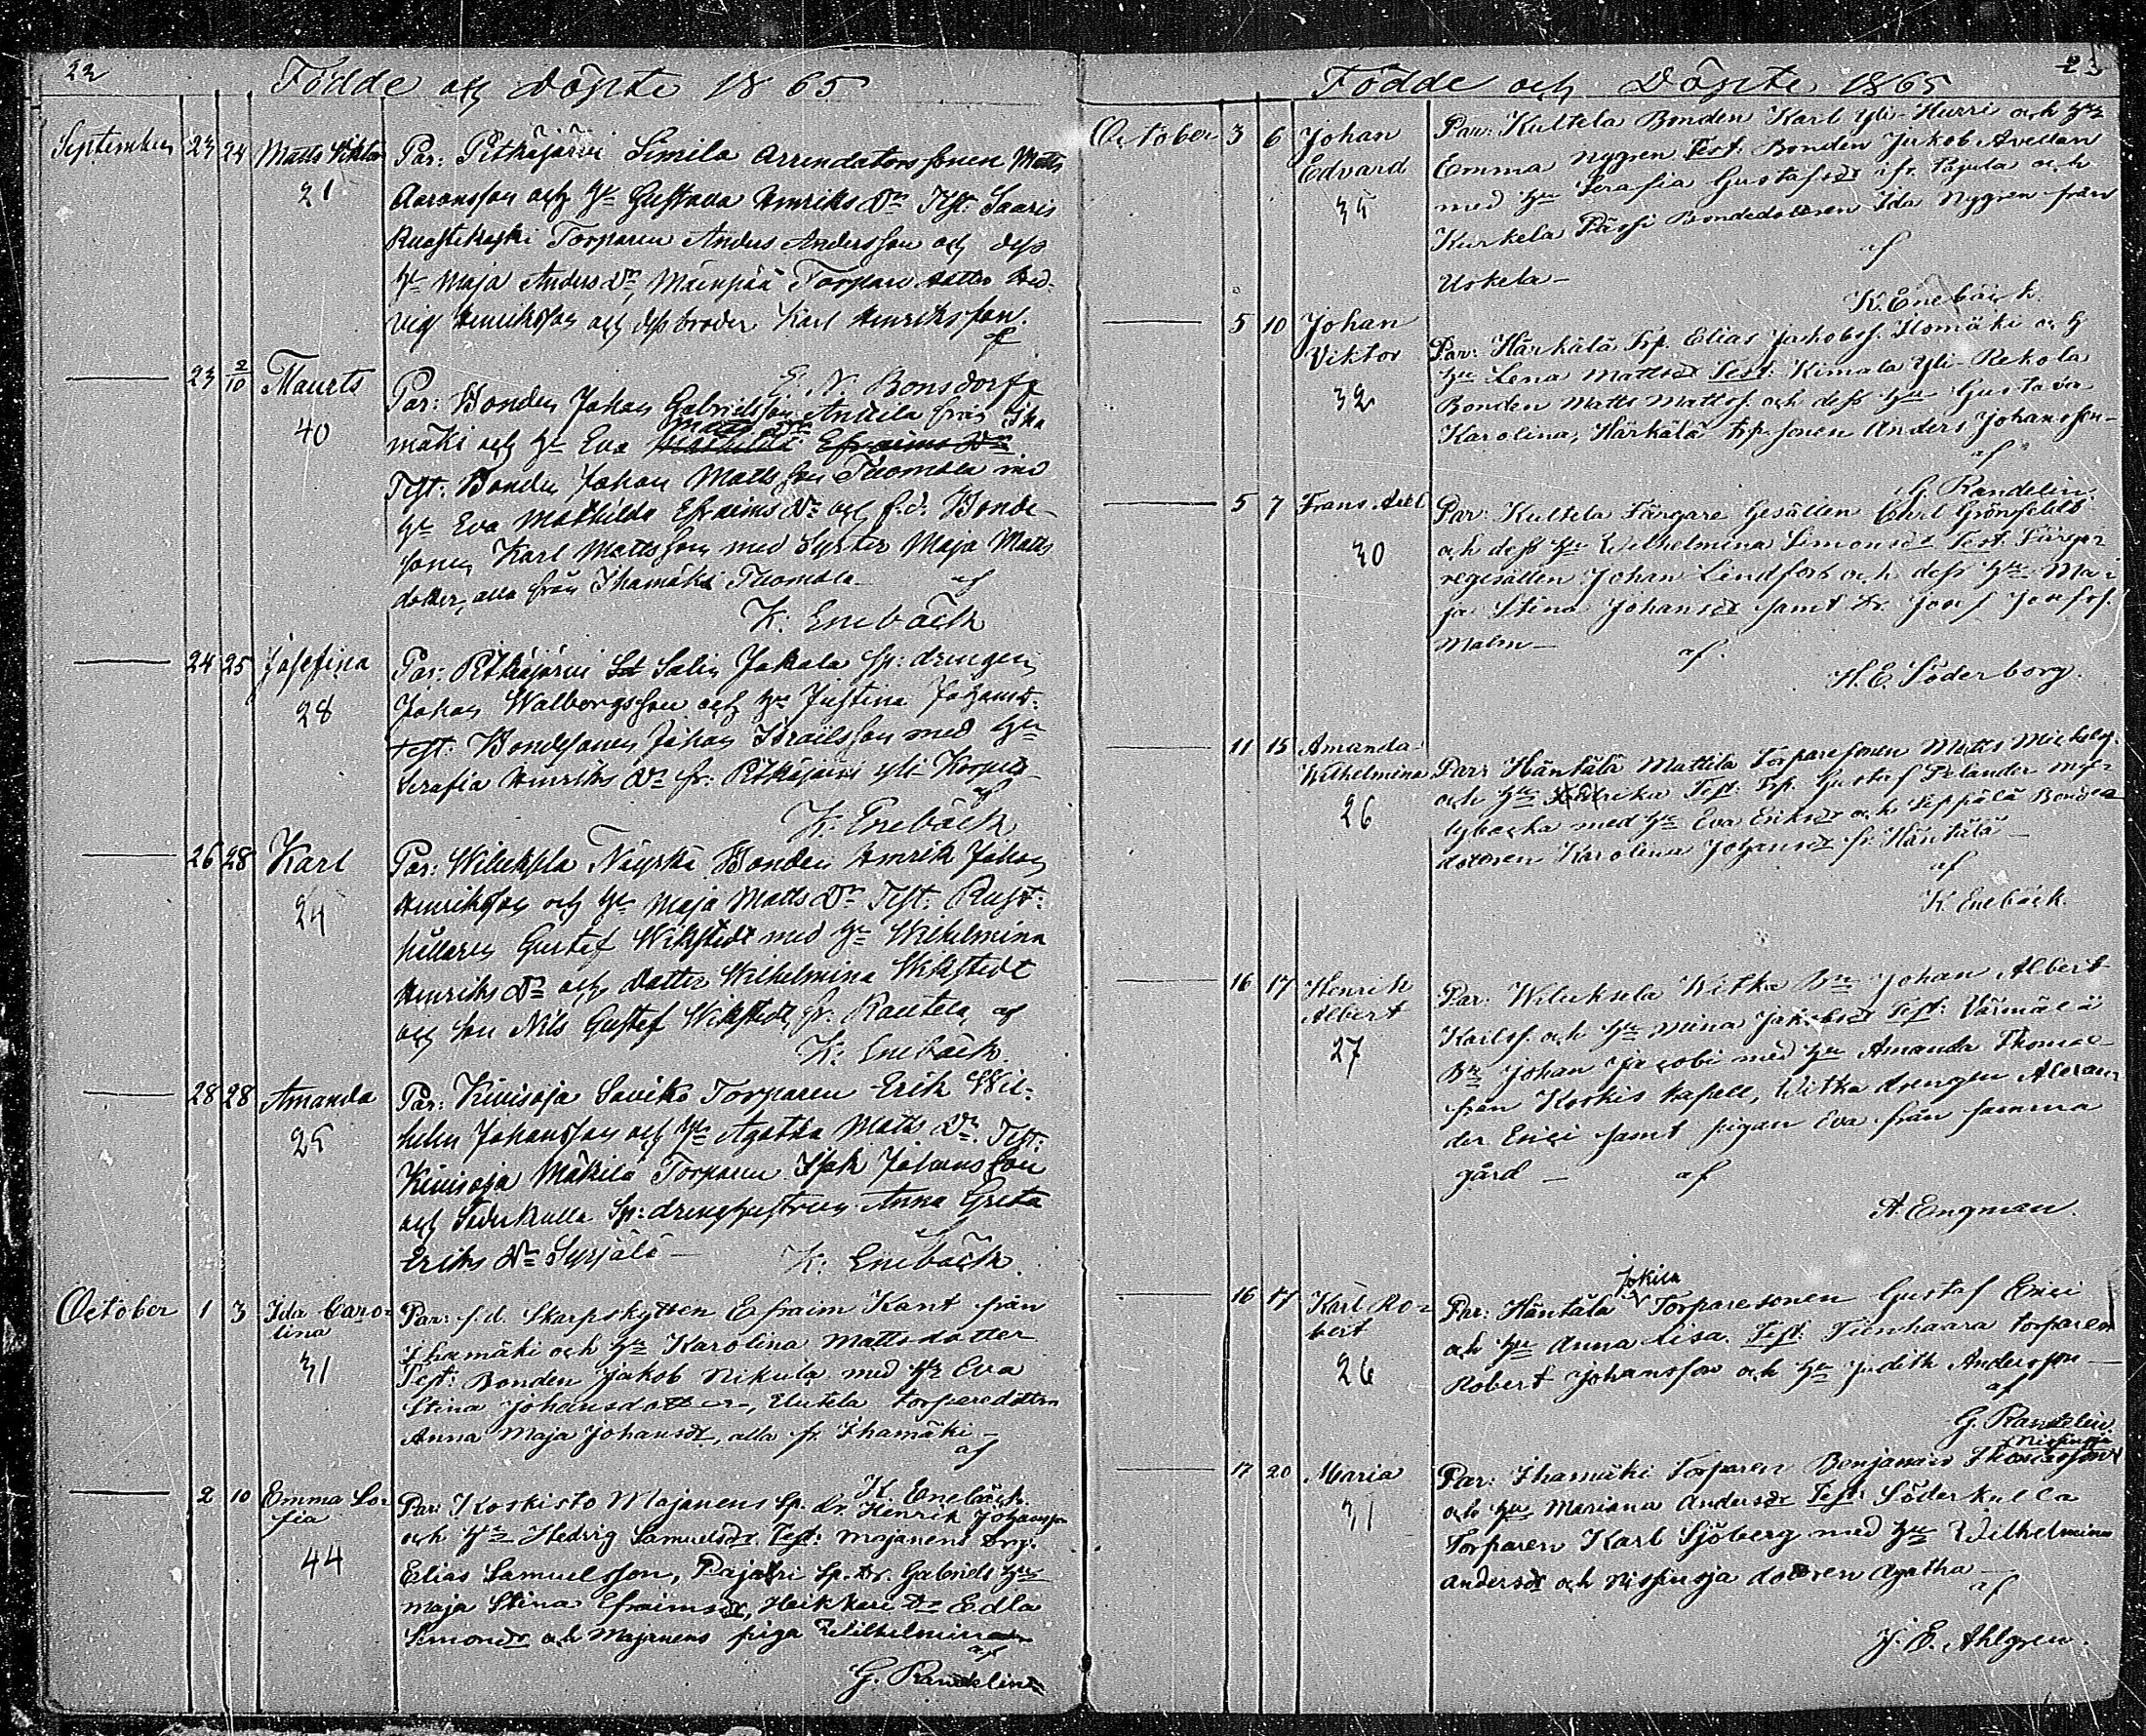 22
Födde och Döpte 1865
September 23 24 Matts Viktor Par: Pitkäjärvi Simila Arrendators sonen Matts
21 Aaronsson och Hu Gustava Henriks Dr Test: Saaris
Torparen Anders Andersson och dess
Hu Maja Anders Dr, Mäenpää Torpare dotter Hed-
vig Henriksson och dess broder Karl Henriksson.
af
E. N. Bonsdorff
23 2/10 Maurits Par: Bonden Johan Gabrielsson Andila från Iha
40 mäki och Hu Eva Matts Dr Mathilda Efraims Dr
Test: Bonden Johan Mattsson Tuomola med
Hu Eva Mathilda Efraims Dr och f.d. Bonde-
sonen Karl Mattsson med Syster Maja Matts
dotter, alla från Ihamäki Tuomola — af
K. Enebäck
24 25 Josefina Par: Pitkäjärvi Salin Jakala sp: drengen
28 Johan Walborgsson och Hu Justina Johansd:
Test: Bondesonen Johan Israelsson med Hu
Serafia Henriks Dr fr: Pitkäjärvi Yli-Korpis
af
K. Enebäck
26 28 Karl Par: Wiluksela Näyski Bonden Henrik Johan
24 Henriksson och Hu Maja Matts Dr Test: Rust-
hållaren Gustaf Wikstedt med Hu Wilhelmina
Henriks Dr och dotter Wilhelmina Wikstedt
och son Nils Gustaf Wikstedt fr. Rautela af
K. Enebäck.
28 28 Amanda Par: Kivisoja Saviko Torparen Erik Wil-
25 helm Johansson och Hu Agatha Matts Dr. Test:
Kivisoja Mäkilä Torparen Isak Johansson
och Söderkulla Sp: drenghustrun Anna Greta
Eriks Dr Syrjälä — af
K. Enebäck.
October 1 3 Ida Caro- Par: f.d. Skarpskytten Efraim Kant från
lina Ihamäki och Hu Karolina Mattsdotter
31 Test: Bonden Jakob Nikula med Hu Eva
Stina Johansdotter, Elutela torparedottern
Anna Maja Johansdr, alla fr. Ihamäki —
af
K. Enebäck.
2 10 Emma So- Par: Koskisto Majanens Sp. dr. Henrik Johansson
fia och Hu Hedvig Samuelsdr. Test: Majanens drg.
44 Elias Samuelsson, Pajari Sp. Dr. Gabriels Hu
Maja Stina Efraimsdr, Heikkari Dr Edla
Simonsdr och Majanens piga Wilhelmina
af
G. Randelin
23
Födde och Döpte 1865
October 3 6 Johan Par: Kultela Bonden Karl Yli-Hurri och Hu
Edvard Emma Nygren Test: Bonden Jakob Avellan
35 med Hu Serafia Gustafsdr fr. Pajula och
Kurkela Pässi Bondedottren Ida Nygren från
Uskela — af
K. Enebäck.
5 10 Johan Par: Härkälä Trp. Elias Jakobss. Ilomäki och
Viktor Hu Lena Mattsdr Test: Kimala Yli-Rekola
32 Bonden Matts Mattss. och dess Hu Gustava
Karolina, Härkälä trp. sonen Anders Johansson —
af
G. Randelin.
5 7 Frans Axel Par: Kultela Färgare Gesällen Carl Grönfeldt
30 och dess Hu Wilhelmina Simonsdr Test: Färga-
regesällen Johan Lindfors och dess Hu Ma-
ja Stina Johansdr samt Dr. Josef Josefss.
Malm — af:
H. E. Söderborg.
11 15 Amanda Par: Häntälä Mattila Torparesonen Matts Mickelss.
Wilhelmina och Hu Test: Trp. Gustaf Telander
26 lybacka med Hu Eva Eriksdr och Seppälä Bonde
dottren Karolina Johansdr fr. Häntälä —
af
K. Enebäck.
16 17 Henrik Par. Wiluksela Witka Bn Johan Albert
Albert Karlss. och Hu Mina Jakobsdr Test: Värmälä
27 Bn Johan Jacobi med Hu Amanda Thomae
från Koskis kapell, Witka drengen Alexan-
der Erici samt pigan Eva från samma
gård — af
A. Engman.
16 17 Karl Ro- Par: Häntälä Jokila Torparesonen Gustaf Erici
bert och Hu Anna Lisa. Test: Tiinhaara torparen
26 Robert Johansson och Hu Judith Andersson —
af
G. Randelin.
17 20 Maria Par: Ihamäki Torparen Benjamin Thomasson
31 och Hu Mariana Andersdr Test: Söderkulla
Torparen Karl Sjöberg med Hu Wilhelmina
Andersdr och dottren Agatha —
af
J. E. Ahlgren.